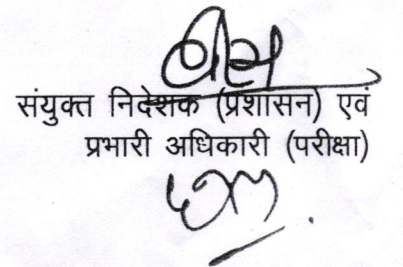 संयुक्त निदेशक (प्रशासन) एवं
प्रभारी अधिकारी (परीक्षा)